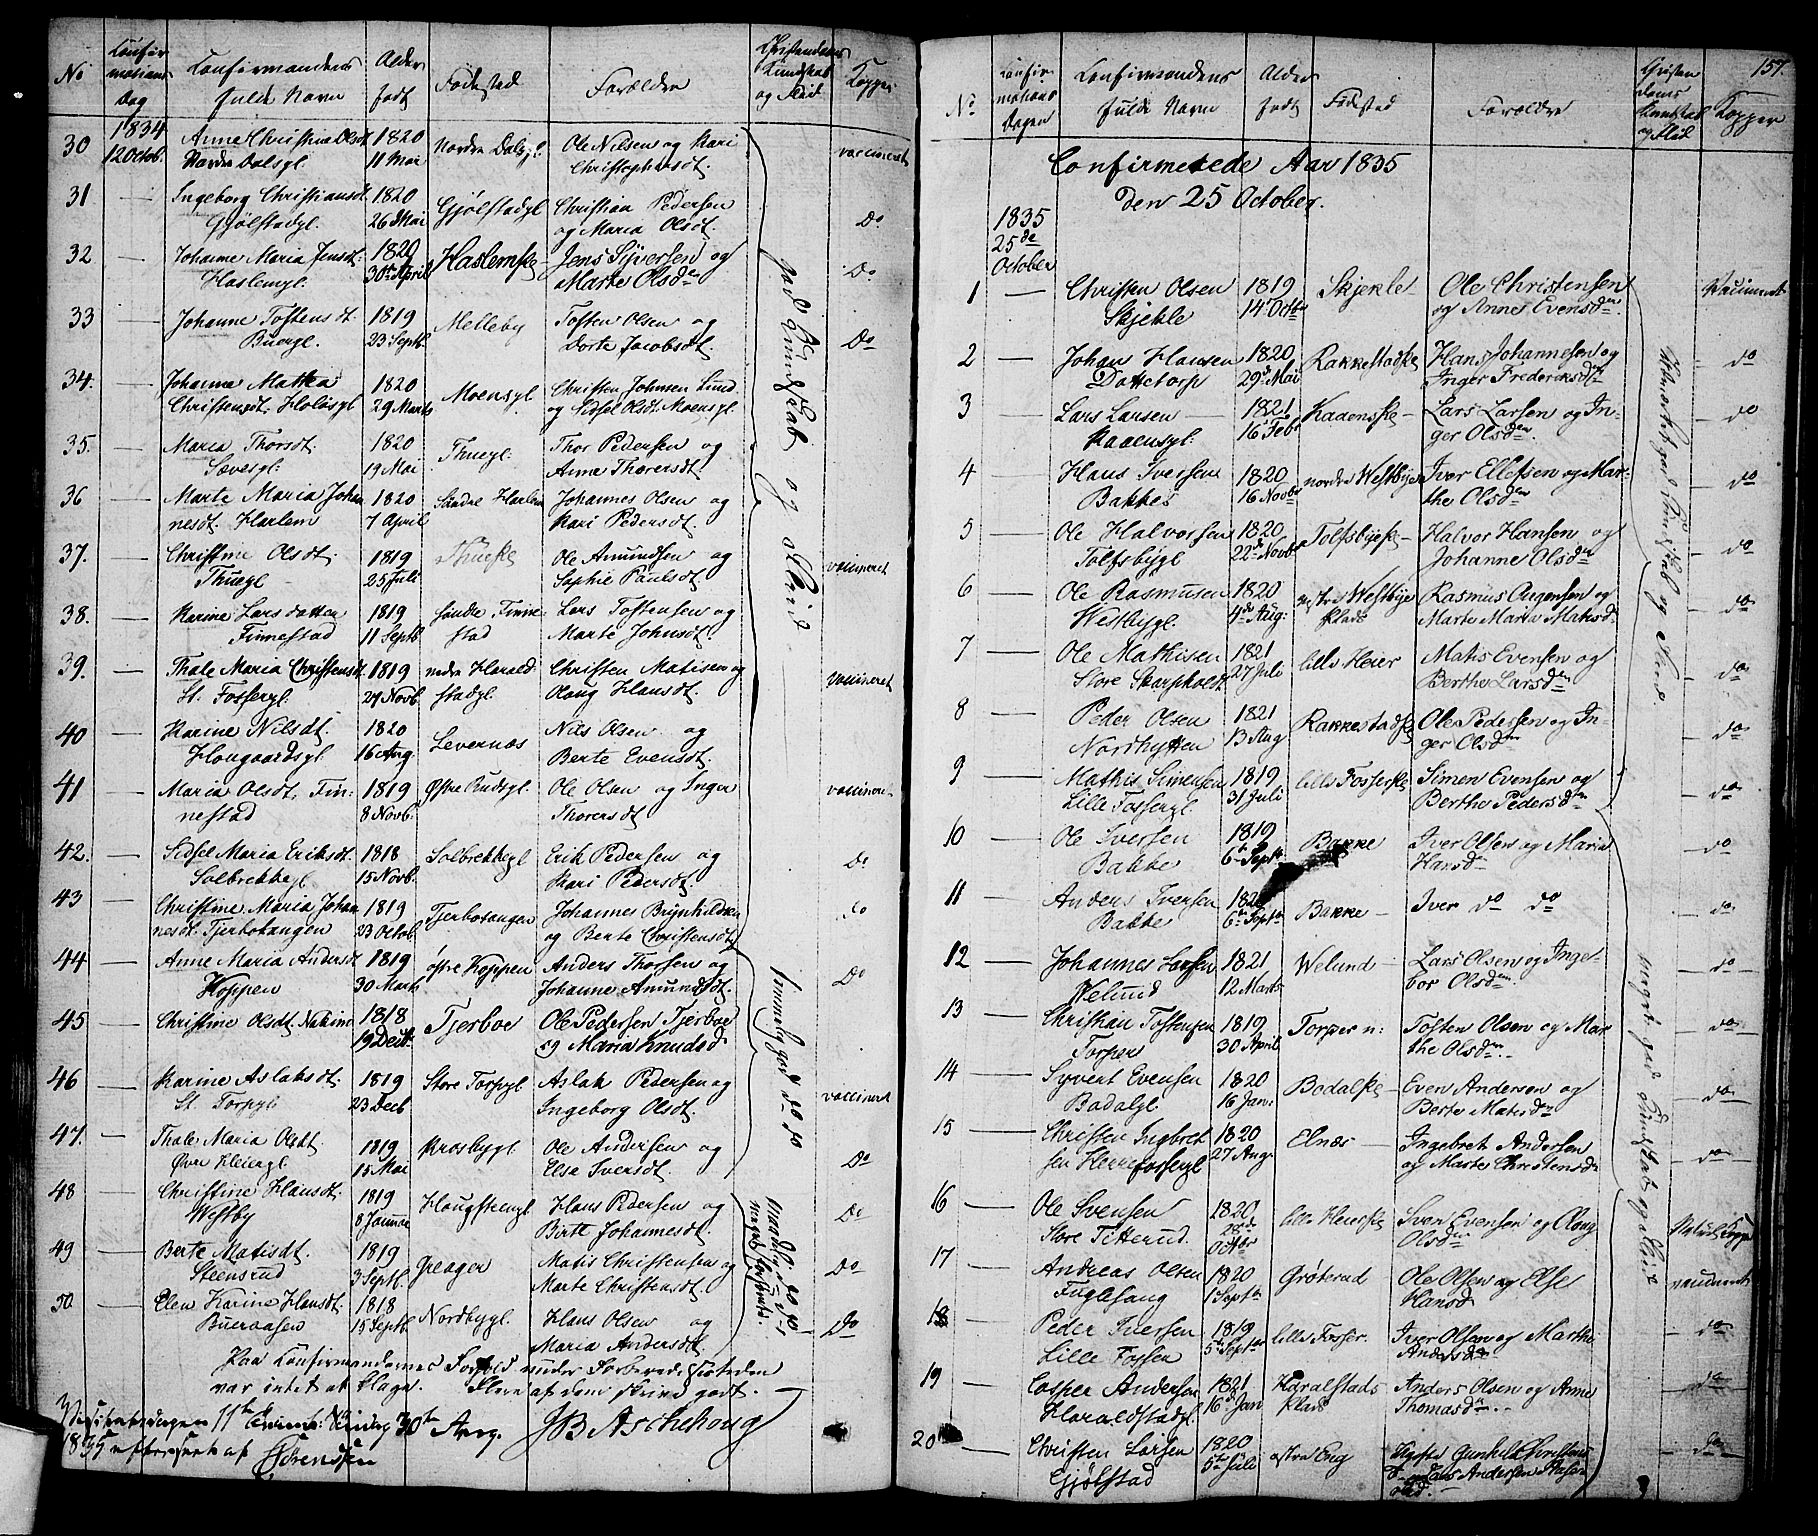 No
Confir
mations
Dag
Confirmandens
fulde Navn
Alder
født
Fødested
Forældre
Christendoms
Kundskab
og Flid
Kopper
30
1834
12 Octob.
Anne Christine Olsdt
Nordre Dalsgl.
1820
11 Mai
Nordre Dalsgl.
Ole Nilsen og Kari
Christophersdt.
vaccineret
31 — Ingeborg Christiansdt.
Gjølstadgl.
1820
26 Mai
Gjølstadgl
Christian Pedersen
og Maria Olsdt.
Do
32 — Johanne Maria Jensdt.
Haslemgl.
1820
30te April
Haslemske
Jens Syversen og
Marte Olsdn
Do
33 — Johanne Tostensdt.
Buergl.
1819
23 Septb.
Melleby
Tosten Olsen og
Dorte Jacobsdt.
Do
34. — Johanne Mathea
Christensdt.
1820
29 Marts
Moensgl
Christen Johnsen Lund
og Sidsel Olsdt. Moensgl.
35. — Maria Thorsdt.
1820
19 Mai
Thuegl.
Thor Pedersen og
Anne Thorersdt.
god Kundskab og Flid
36 — Marte Maria Johan
nesdt. Harlem
1820
7 April
Søndre Harlem
Johannes Olsen og
Kari Pedersdt.
37. — Christine Olsdt.
Thuegl
1819
25 Juli
Thueske
Ole Amundsen og
Sophie Paulsdt.
vaccineret
38. — Karine Larsdatter
Finnestad
1819
11 Septb.
Søndre Finne
stad
Lars Tostensen og
Marte Johnsdt.
39. — Thale Maria Christensdt.
St. Fossergl.
1819
29 Novb.
nedre Harald
stadgl.
Christen Matisen og
Olaug Hansdt.
vaccineret
40 — Karine Nilsdt.
Hougaardsgl.
1820
16 Aug
Levernæs
Nils Olsen og
Berte Evensdt.
41 — Maria Olsdt. Fin-
nestad
1819
8 Novb.
Østre Rudsgl.
Ole Olsen og Inger
Thorersdt
vaccineret
42. — Sidsel Maria Eriksdt.
Solbrekkegl
1818
15 Novb.
Solbrekkegl
Erik Pedersen og
Kari Pedersdt.
Do
43 — Christine Maria Johan
nesdt. Tjerbotangen
1819
23 Octob.
Tjerbotangen
Johannes Brynhildsen
og Berte Christensdt.
do
44 — Anne Maria Andersdt
Koppen
1819
30 Marts
østre Koppen
Anders Thorsen og
Johanne Amundsdt.
Do
45 — Christine Olsdt.
1818
19 Decbr
Tjerboe
Ole Pedersen Tjerboe
og Maria Knudsd
temmelig god do do
46 — Karine Aslaksdt.
St. Torpgl.
1819
23 Decb
Store Torpgl
Aslak Pedersen og
Ingeborg Olsdt.
vaccineret
47. — Thale Maria Olsdt.
Øvre Heiergl
1819
15 Mai
Krosbygl
Ole Andersen og
Else Iversdt.
Do
48 — Christine Hansdt.
Westby
1819
8 Januar
Hougsteengl
Hans Pedersen og
Birte Johannesdt.
Do
49 — Berte Matisdt.
Steensrud
1819
3 Septb.
Greager
Matis Christensen og
Marte Christensdt.
Do
50. — Elen Karine Hansdt.
Bueraasen
1818
15 Septb
Nordbygl.
Hans Olsen og
Maria Andersdt.
Do
Paa Confirmandernes Forhold under Forberedelsestiden
var intet at klage. Flere af dem skrive godt.
Visitatsdagen 11te Trinit. Søndag 30te Aug.
1835 efterseet af Sørenssen
JB Aschehoug
157.
No
Confir
mations
Dagen
Confirmandens
fulde Navn
Alder
født
Fødested
Forældre
Christen
doms
Kundskab
og Flid
Kopper
Confirmerede Aar 1835
den 25 October.
1835
25de
October
1 — Christen Olsen
Skjekle
1819
14 Octbr
Skjekle
Ole Christensen
og Anne Evensdn
Vaccineret
2 — Johan Hansen
Dattetorp
1820
29de Mai
Rakkestadske
Hans Johannesen og
Inger Frederiksdtr
do
3 — Lars Larsen
Kaaensgl.
1821
16 Febr
Kaaenske
Lars Larsen og In-
ger Olsdn.
do
4 — Hans Iversen
Bakkes
1820
16 Novbr
nordre Westbye
Iver Ellefsen og Mar-
the Olsdn
do
5 — Ole Halvorsen
Tolfsbygl
1820
22de Novbr
Tolfsbyeske
Halvor Hansen og
Johanne Olsdn
do
6 — Ole Rasmusen
Westbygl.
1820
4de Aug:
vestre Westbye
Klads
Rasmus Augensen og
Marte Maria Matisd
do
7 — Ole Mathisen
Store Skarpholt
1821
27 Juli
lille Heier
Matis Evensen og
Berthe Larsdn
do
8 — Peder Olsen
Nordhytten
1821
13 Aug
Rakkestadske
Ole Pedersen og In-
ger Olsdn
do
9 — Mathis Simensen
Lille Fossergl.
1819
31 Juli
lille Fosserske
Simen Evensen og
Berthe Pedersdn
do
10 — Ole Iversen
Bakke
1819
6te Septbr
Bakke
Iver Olsen og Maria
Hansd
do
11 — Anders Iversen
Bakke
6te Septbr
Bakke
Iver do do
do
12 — Johannes Larsen
Welund
1821
12 Marts
Welund
Lars Olsen og Inge-
bor Olsdn.
do
13 — Christian Tostensen
Torper
1819
30 April
Torper n:
Tosten Olsen og Mar
the Olsdn.
do
14 — Syvert Evensen
Bodalgl.
1820
16 Jan:
Bodalske
Even Andersen og
Berte Matisdn
do
15 — Christen Ingbret
sen Herrefossergl
1820
27 Aug:
Elnæs
Ingebret Andersen
og Marte Christensdn
do
16 — Ole Svensen
Store Titterud.
1820
Octbr
lille Heierske
Sven Evensen og Olaug
Olsdn
Naturl. Kopper
17 — Andreas Olsen
Fuglesang
1820
1 Septbr
Grøterud
Ole Olsen og Else
Hansd
vaccineret
18 — Peder Iversen
Lille Fosser
1819
5te Septbr
lille Fosser
Iver Olsen og Marthe
Andersdn
do
19 — Casper Andersen
Haraldstadgl.
1821
16de Jan
Haralstads
Klads
Anders Olsen og Anne
Thomasdn
do
20 — Christen Larsen
Gjølstad
1820
5te Juli
østre Eng
do